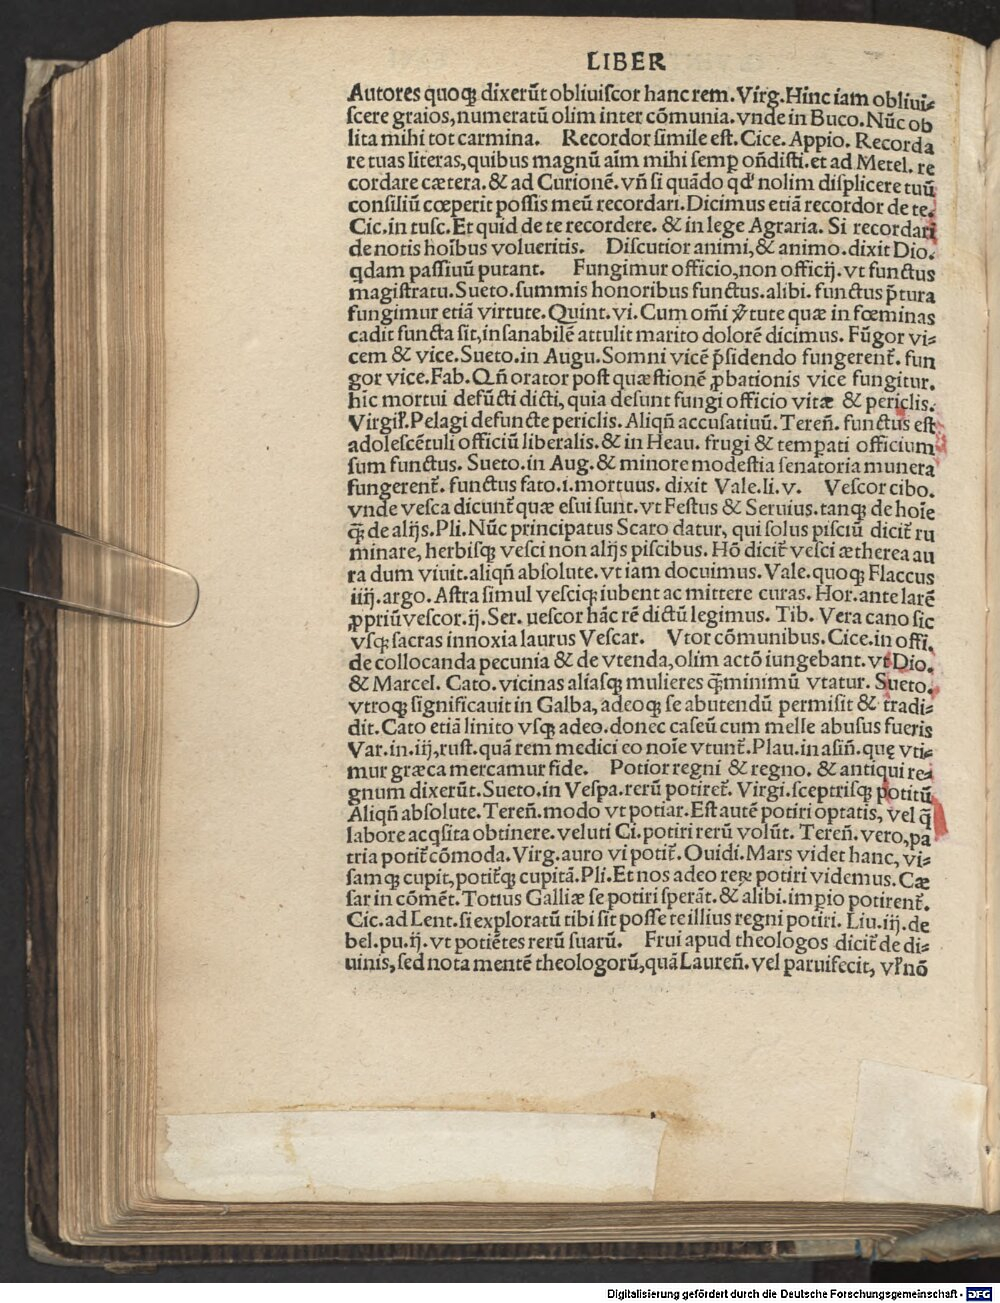 LIBER
Autores quoqꝫ dixerūt obliuiſcor hanc rem. Virg. Hinc iam obliui⸗
ſcere graios, numeratū olim inter cōmunia. vnde in Buco. Nūc ob
lita mihi tot carmina. Recordor ſimile eſt. Cice. Appio. Recorda
re tuas literas, quibus magnū aīm mihi ſemꝑ oñdiſti. et ad Metel. re
cordare cætera. & ad Curionē. vñ ſi quādo qd' nolim diſplicere tuū
conſiliū cœperit poſſis meū recordari. Dicimus etiā recordor de te.
Cic. in tuſc. Et quid de te recordere. & in lege Agraria. Si recordari
de notis hoībus volueritis. Diſcutior animi, & animo. dixit Dio.
qdam paſſiuū putant. Fungimur officio, non officij. vt functus
magiſtratu. Sueto. ſummis honoribus functus. alibi. functus p̄tura
fungimur etiā virtute. Quint. vi. Cum om̄i v̄tute quæ in fœminas
cadit functa ſit, inſanabilē attulit marito dolorē dicimus. Fūgor vi⸗
cem & vice. Sueto. in Augu. Somni vicē p̄ſidendo fungerent̄. fun
gor vice. Fab. Qñ orator poſt quæſtionē ꝓbationis vice fungitur.
hic mortui defūcti dicti, quia deſunt fungi officio vitæ & periclis.
Virgił. Pelagi defuncte periclis. Aliqñ accuſatiuū. Tereñ. functus eſt
adoleſcētuli officiū liberalis. & in Heau. frugi & temꝑati officium
ſum functus. Sueto. in Aug. & minore modeſtia ſenatoria munera
fungerent̄. functus fato. i. mortuus. dixit Vale. li. v. Veſcor cibo.
vnde veſca dicunt̄ quæ eſui ſunt. vt Feſtus & Seruius. tanqꝫ de hoīe
q̄ꝫ de alijs. Pli. Nūc principatus Scaro datur, qui ſolus piſciū dicit̄ ru
minare, herbiſqꝫ veſci non alijs piſcibus. Hō dicit̄ veſci ætherea au
ra dum viuit. aliqñ abſolute. vt iam docuimus. Vale. quoqꝫ Flaccus
iiij. argo. Aſtra ſimul veſciqꝫ iubent ac mittere curas. Hor. ante larē
ꝓpriū veſcor. ij. Ser. ueſcor hāc rē dictū legimus. Tib. Vera cano ſic
vſqꝫ ſacras innoxia laurus Veſcar. Vtor cōmunibus. Cice. in offi.
de collocanda pecunia & de vtenda, olim actō iungebant. vt Dio.
& Marcel. Cato. vicinas aliaſqꝫ mulieres q̄ꝫminimū vtatur. Sueto.
vtroqꝫ ſignificauit in Galba, adeoqꝫ ſe abutendū permiſit & tradi⸗
dit. Cato etiā linito vſqꝫ adeo. donec caſeū cum melle abuſus fueris
Var. in. iij, ruſt. quā rem medici eo noīe vtunt̄. Plau. in aſiñ. quę vti⸗
mur græca mercamur fide. Potior regni & regno. & antiqui re⸗
gnum dixerūt. Sueto. in Veſpa. rerū potiret̄. Virgi. ſceptriſqꝫ potitū
Aliqñ abſolute. Tereñ. modo vt potiar. Eſt autē potiri optatis, vel q̄
labore acqſita obtinere. veluti Ci. potiri rerū volūt. Tereñ. vero, pa
tria potit̄ cōmoda. Virg. auro vi potit̄. Ouidi. Mars videt hanc, vi⸗
ſam qꝫ cupit, potit̄qꝫ cupitā. Pli. Et nos adeo reꝝ potiri videmus. Cæ
ſar in cōmēt. Totius Galliæ ſe potiri ſperāt. & alibi. imꝑio potirent̄.
Cic. ad Lent. ſi exploratū tibi ſit poſſe te illius regni potiri. Liu. iij. de
bel. pu. ij. vt potiētes rerū ſuarū. Frui apud theologos dicit̄ de di⸗
uinis, ſed nota mentē theologorū, quā Laureñ. vel paruifecit, vł nō
Digitalisierung gefördert durch die Deutsche Forschungsgemeinschaft - DFG